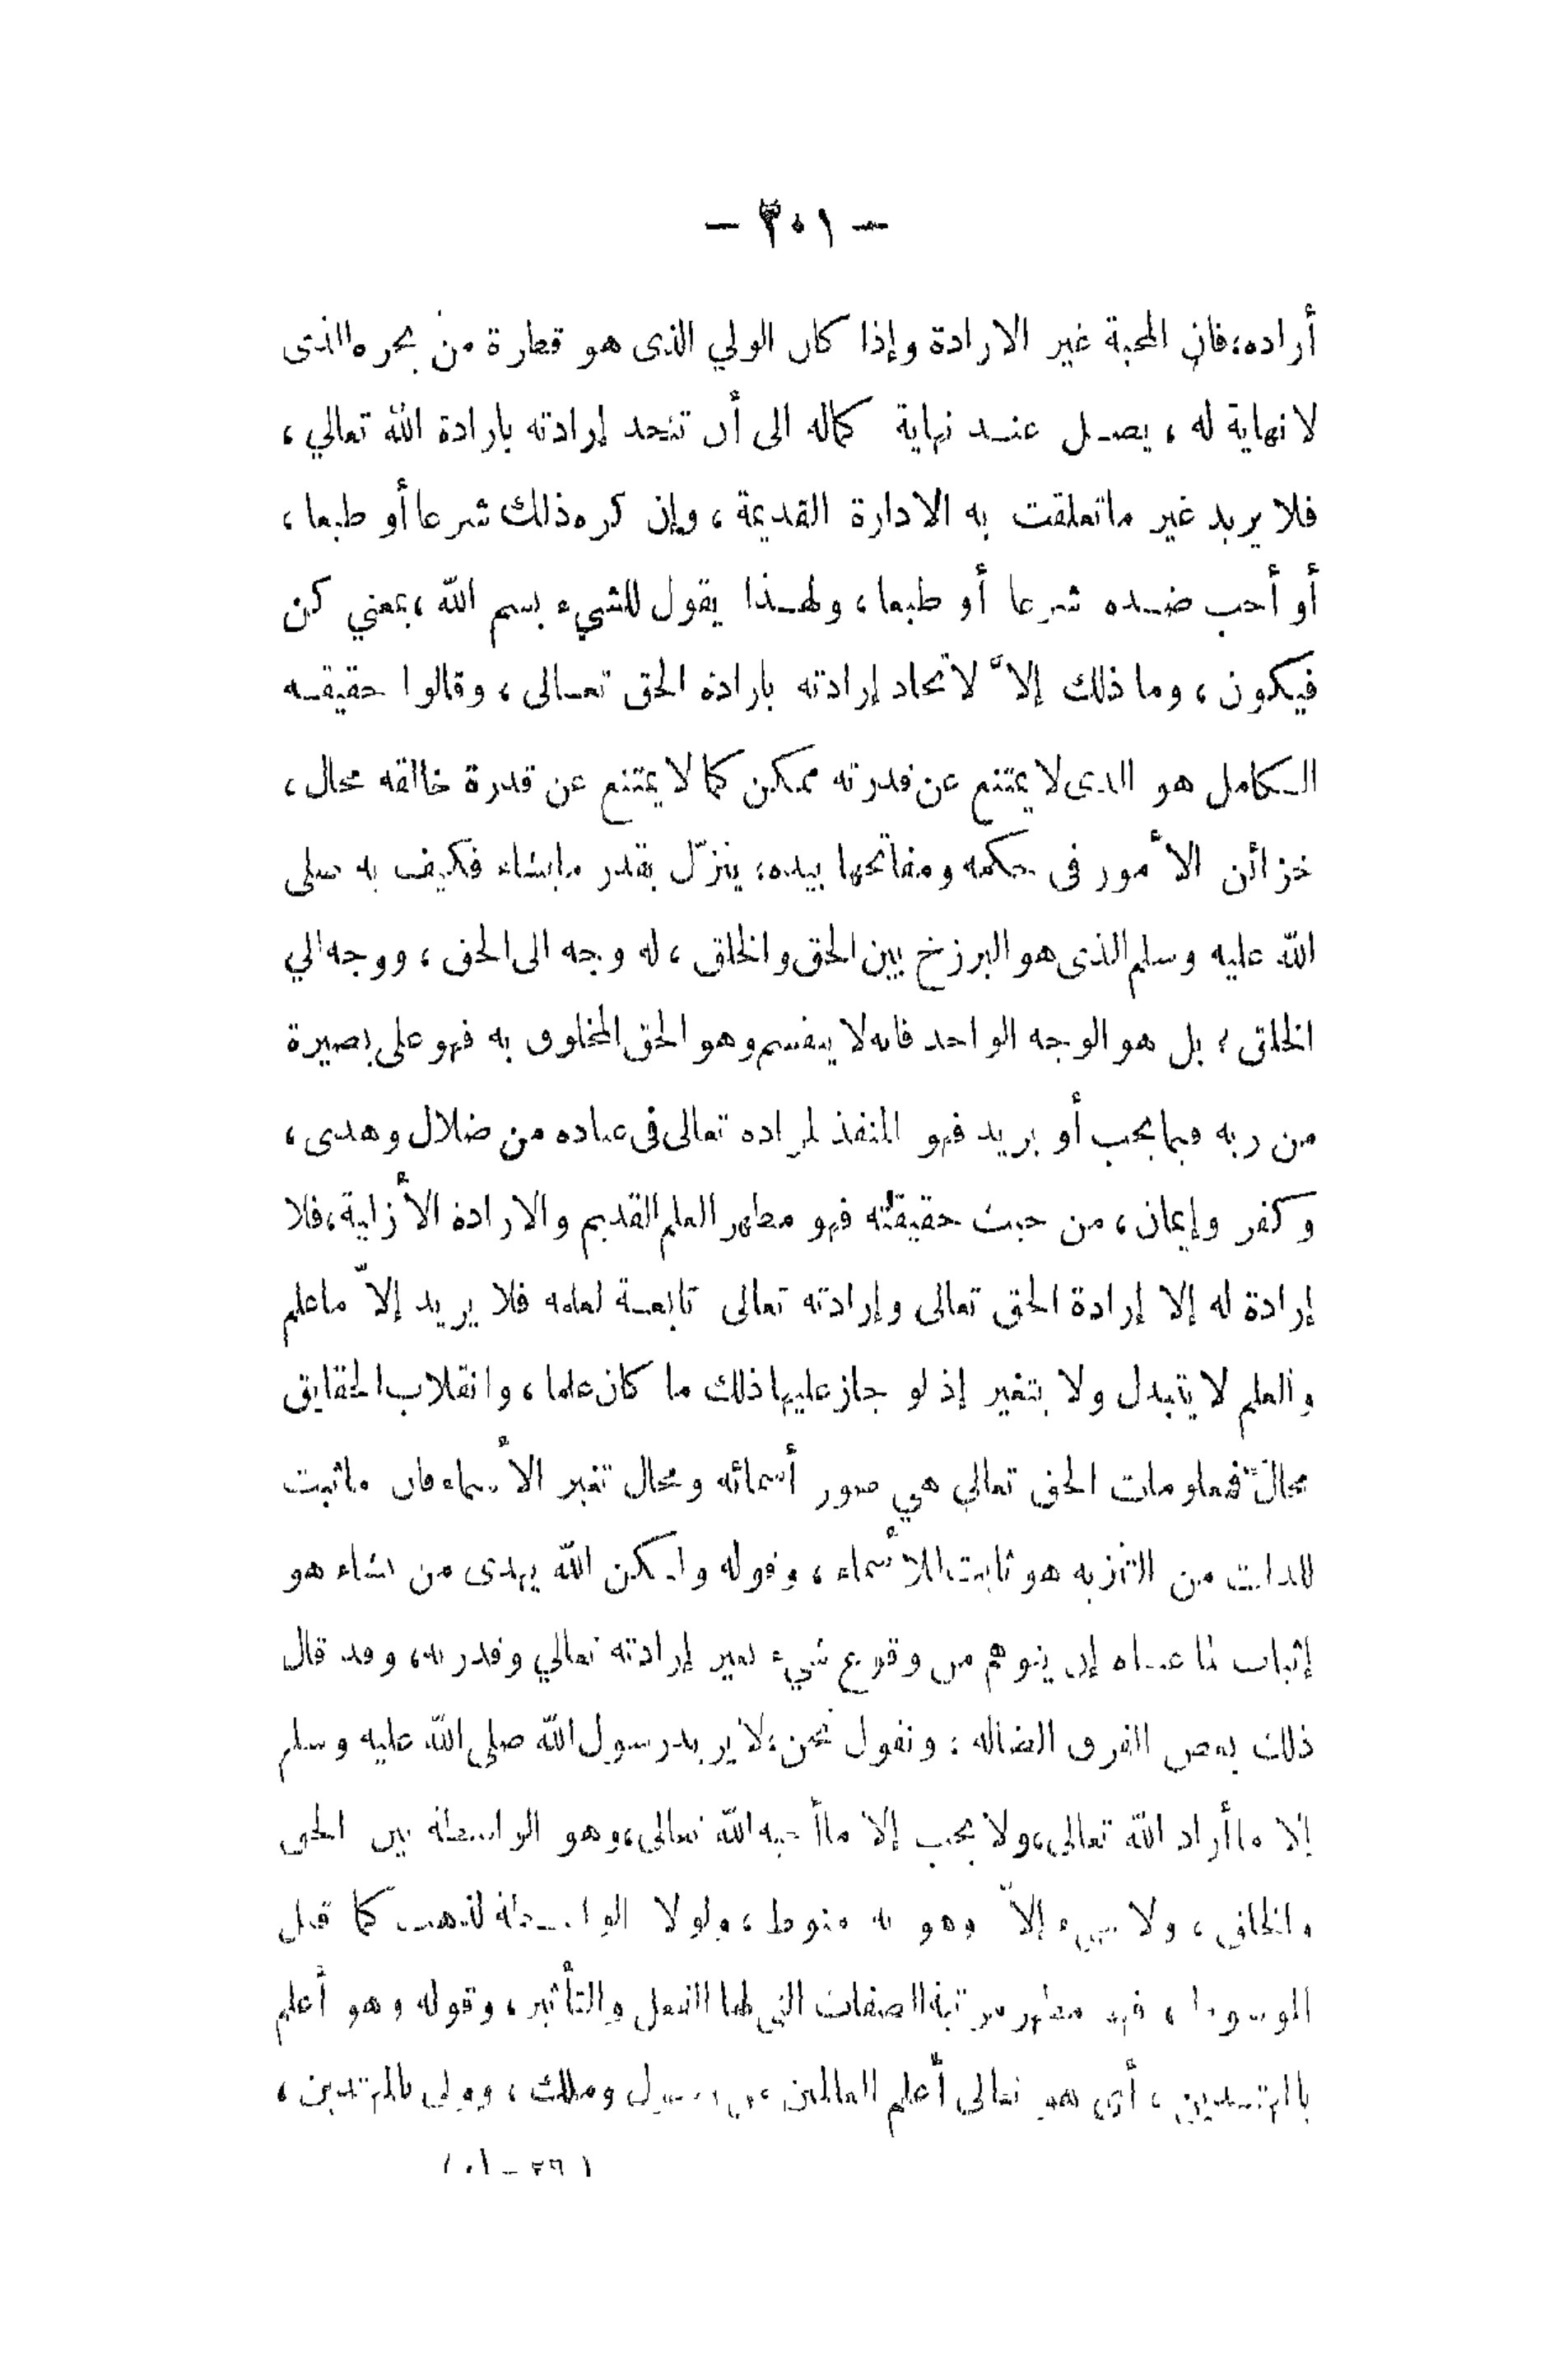 — ٣٠١ —
أراده، فان المحبة غير الارادة وإذا كان الولي الذى هو قطرة من بحره الذى
لا نهاية له ، يصل عند نهاية كماله الى أن تتحد إرادته بارادة الله تعالي ،
فلا يريد غير ماتعلقت به الادارة القديمة ، وإن كره ذلك شرعا أو طبعا ،
أو أحب ضده شرعا أو طبعا ، ولهذا يقول للشيء بسم الله ، بمعني كن
فيكون ، وما ذلك إلاّ لاتحاد إرادته بارادة الحق تعالى ، وقالوا حقيقه
الكامل هو الذى لا يمتنع عن قدرته ممكن كما لا يمتنع عن قدرة خالقه محال ،
خزائن الأمور فى حكمه ومفاتحها بيده، ينزّل بقدر مايشاء فكيف به صلى
الله عليه وسلم الذى هو البرزخ بين الحق والخلق ، له وجه الى الحق ، ووجه الي
الخلق ؛ بل هو الوجه الواحد فانه لا ينقسم وهو الحق المخلوق به فهو على بصيرة
من ربه فيما يحب أو يريد فهو المنفذ لمراده تعالى فى عباده من ضلال وهدى ،
وكفر وإيمان ، من حيث حقيقته فهو مظهر العلم القديم والارادة الأزلية ، فلا
إرادة له إلا إرادة الحق تعالى وإرادته تعالى تابعة لعلمه فلا يريد إلاّ ماعلم
والعلم لا يتبدل ولا يتغير إذ لو جاز عليها ذلك ما كان علما ، وانقلاب الحقايق
محال فمعلومات الحق تعالي هي صور أسمائه ومحال تغير الأسماء فان ماثبت
للذات من التنزيه هو ثابت للأسماء ، وقوله ولكن الله يهدى من يشاء هو
إثبات لما عساه إن يتوهم من وقوع شيء بغير إرادته تعالي وقدرته، وقد قال
ذلك بعض الفرق الضاله ؛ ونقول نحن ؛ لا يريد رسول الله صلى الله عليه وسلم
إلا ما أراد الله تعالى، ولا يحب إلا ما أحبه الله تعالى، وهو الواسطة بين الحق
والخلق ، ولا شيء إلاّ وهو به منوط ، ولولا الواسطة لذهب كما قيل
الموسوط ، فهو مظهر مرتبة الصفات التي لها الفعل والتأثير ، وقوله وهو أعلم
بالمهتدين ، أى هو تعالى أعلم العالمين من رسول وملك ، وولى بالمهتدين ،